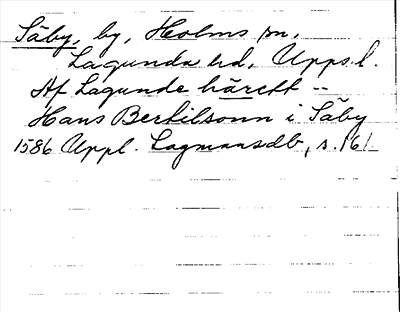 Säby, by, Holms sn,
Lagunda hd, Upps. l.
Af Lagunde härett --
Hans Bertilsonn i Säby
1586 Uppl. Lagmansdb, s. 161